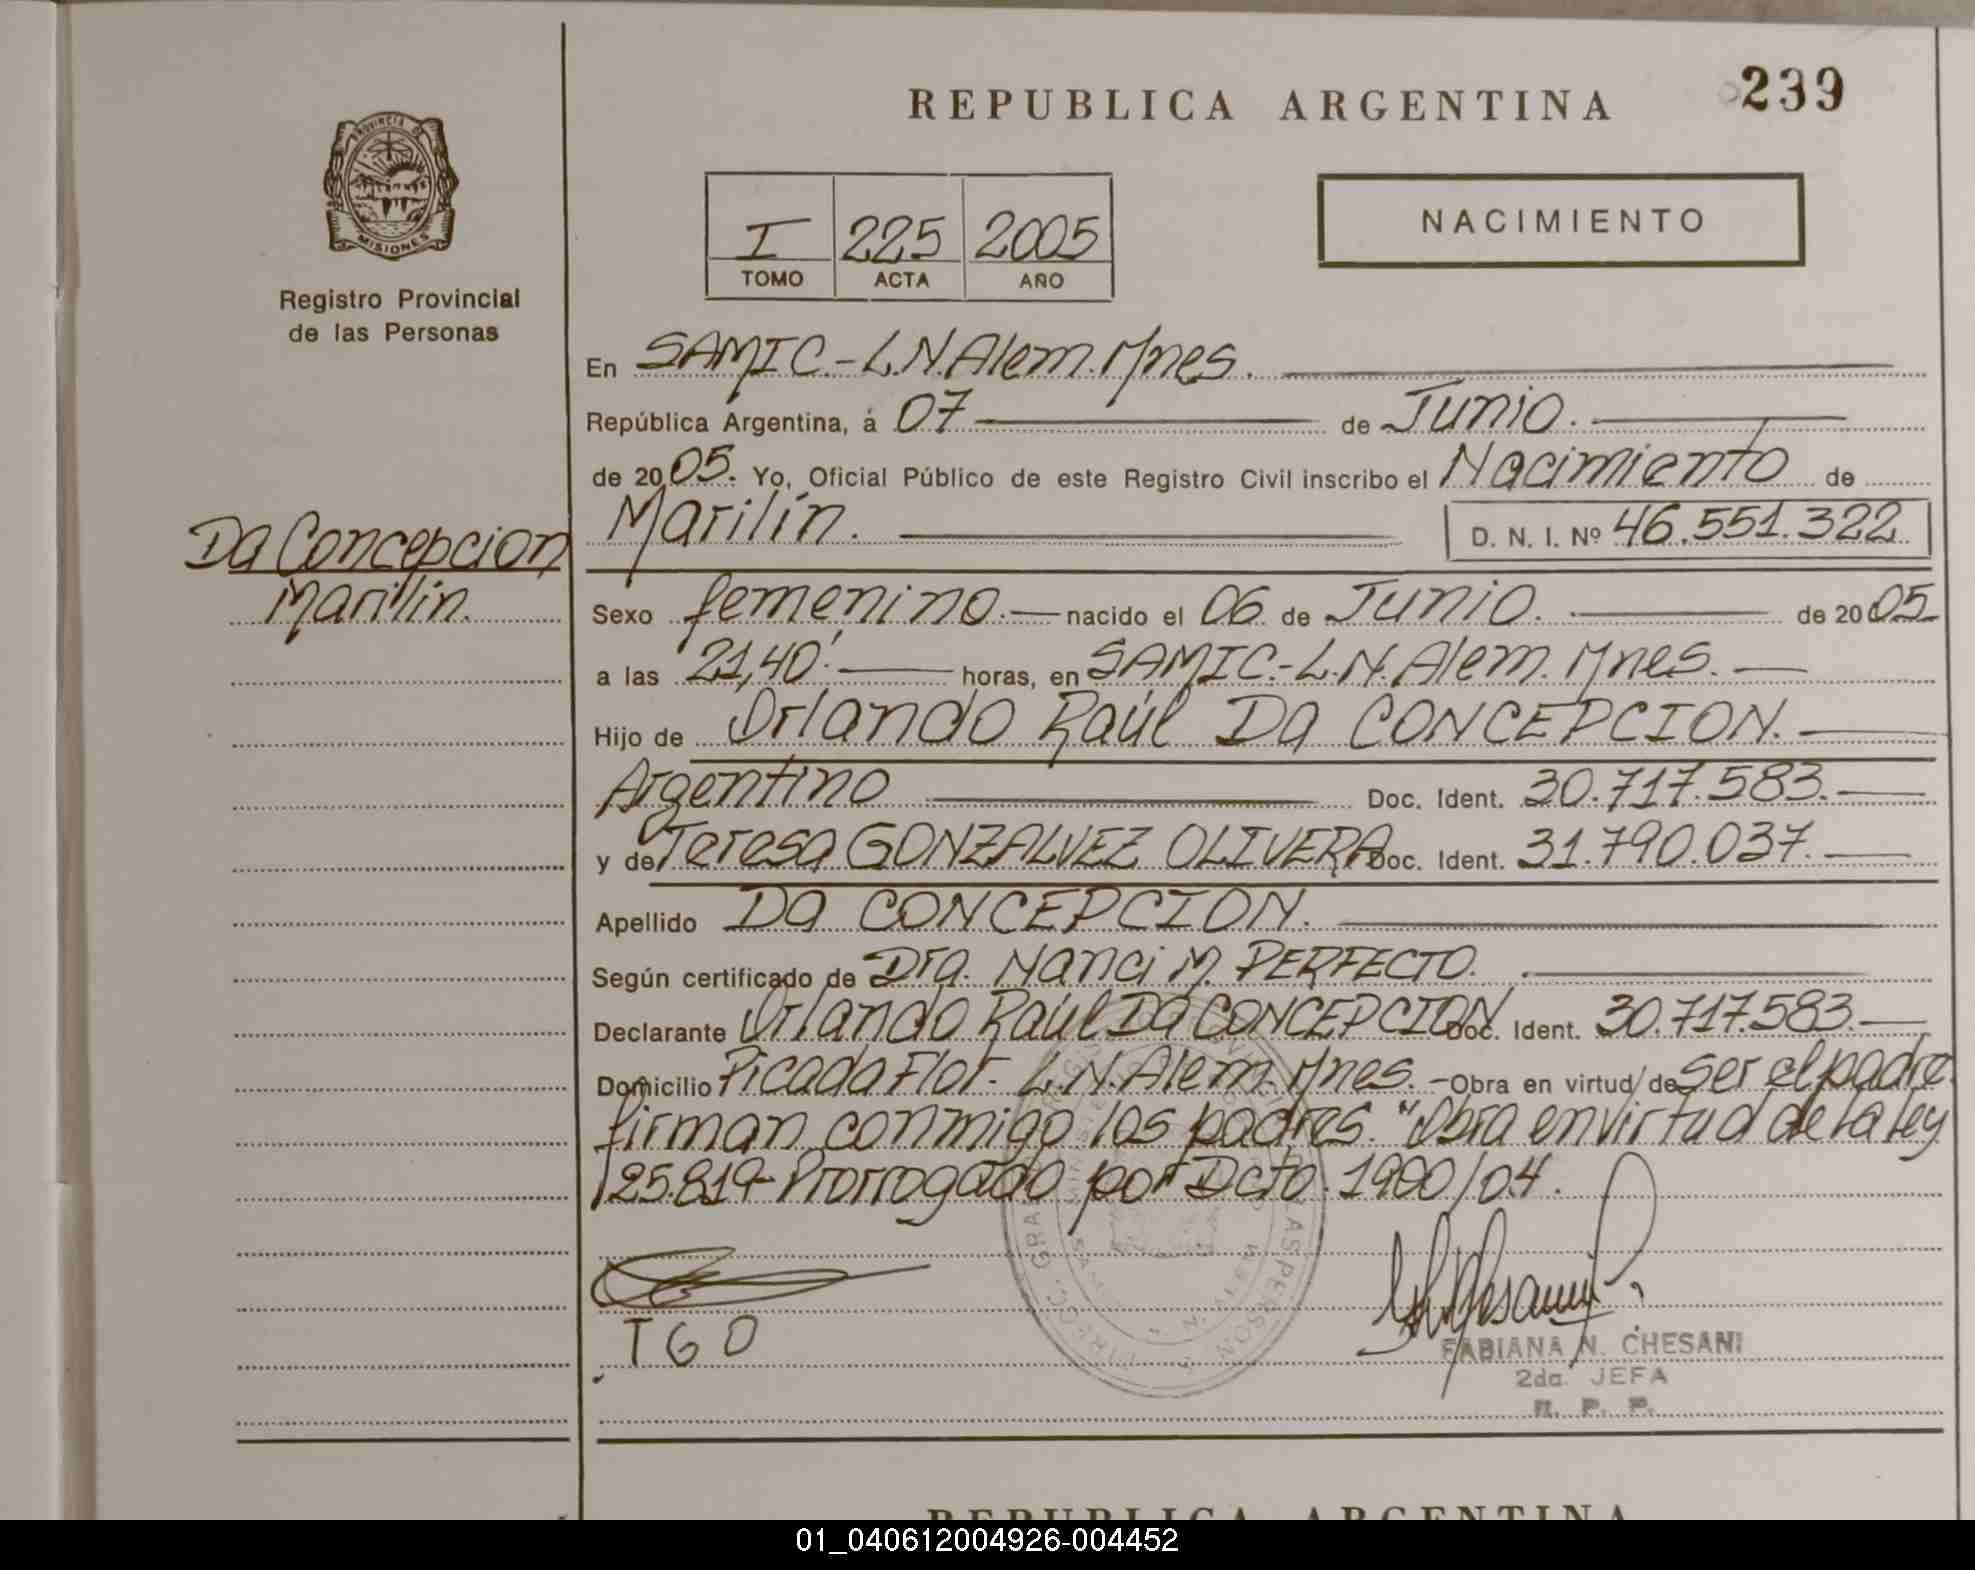 REPUBLICA ARGENTINA
239
PROVINCIA DE
MISIONES
Registro Provincial
de las Personas
I 225 2005
TOMO ACTA AÑO
NACIMIENTO
En SAMIC.-L.N.Alem.Mnes.
República Argentina, á 07 de Junio.
de 2005. Yo, Oficial Público de este Registro Civil inscribo el Nacimiento de
Marilín. D. N. I. Nº 46.551.322
Da Concepcion
Marilín.
Sexo femenino. nacido el 06 de Junio. de 2005
a las 21,40' horas, en SAMIC.-L.N.Alem. Mnes.
Hijo de Orlando Raúl Da CONCEPCION.
Argentino Doc. Ident. 30.717.583.
y de Teresa GONZALVEZ OLIVERA Doc. Ident. 31.790.037.
Apellido Da CONCEPCION.
Según certificado de Dra. Nanci M. PERFECTO.
Declarante Orlando Raúl Da CONCEPCION Doc. Ident. 30.717.583.
Domicilio Picada Flor. L.N.Alem. Mnes. - Obra en virtud de ser el padre.
firman conmigo los padres. "Obra en virtud de la ley
25.819- Prorrogado por Dcto. 1900/04.
TGO
FABIANA N. CHESANI
2da. JEFA
R. P. P.
REPUBLICA ARGENTINA
01_040612004926-004452